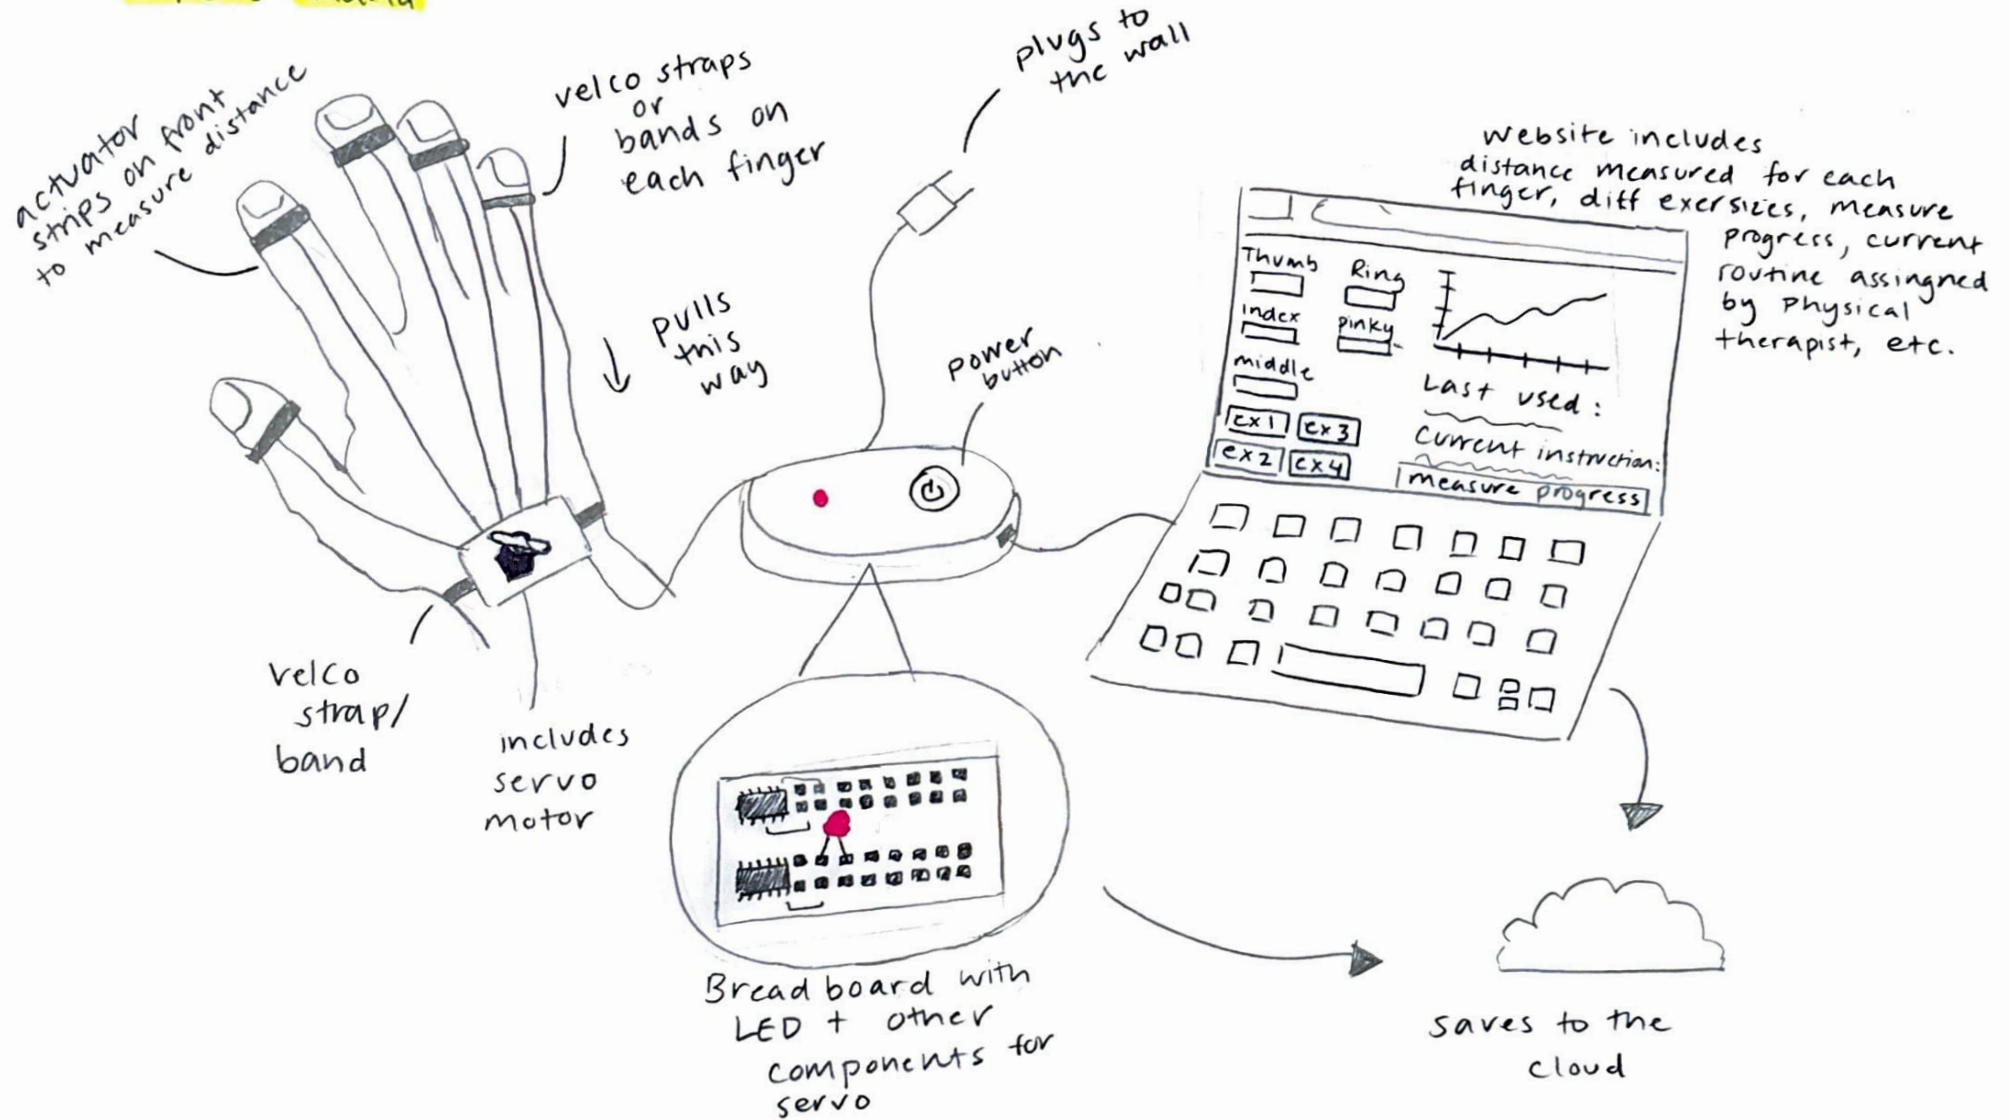 actuator
strips on front
to measure distance
velco straps
or
bands on
each finger
plugs to
the wall
website includes
distance measured for each
finger, diff exersizes, measure
progress, current
routine assingned
by Physical
therapist, etc.
pulls
this
way
power
button
Thumb
Ring
index
pinky
middle
ex1
ex3
ex2
ex4
Last used:
Current instruction:
measure progress
velco
strap/
band
includes
servo
motor
Bread board with
LED + other
components for
servo
saves to the
cloud